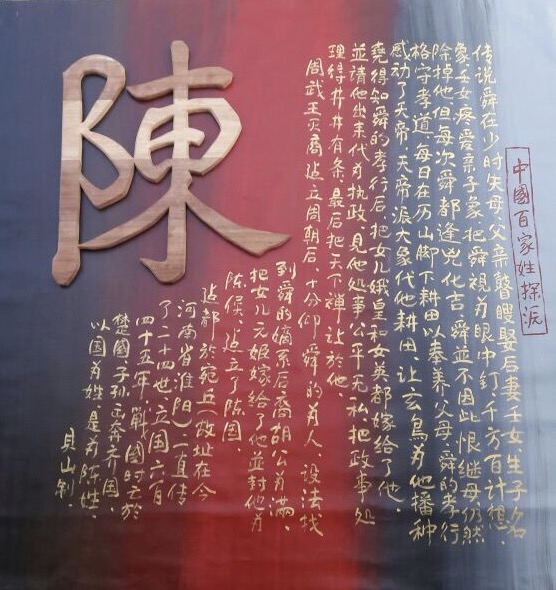 中國百家姓探派
传说舜在少时失母，父亲瞽瞍娶后妻壬女，生子名
象，壬女疼爱亲子象，把舜视为眼中釘，千方百计想
除掉他但每次舜都逢兇化吉，舜並不因此恨继母仍然
格守孝道，每日在历山脚下耕田以奉养父母，舜的孝行
感动了天帝，天帝派大象代他耕田，让玄鳥为他播种
堯得知舜的孝行后，把女儿娥皇和女英都嫁给了他，
並請他出来代为执政，見他処事公平无私，把政事処
理得井井有条，最后把天下禅让於他，
周武王灭商，建立周朝后，十分仰舜的为人，设法找
到舜的嫡系后裔胡公为满，
把女儿元姬嫁給了他並封他为
陈侯，建立了陈國，
建都於宛丘（故址在今
河南省淮阳），一直传
了二十四世，立国六百
四十五年，戰國时亡於
楚國，子孙出奔齐国，
以国为姓，是为陈姓，
貝山制，
陳